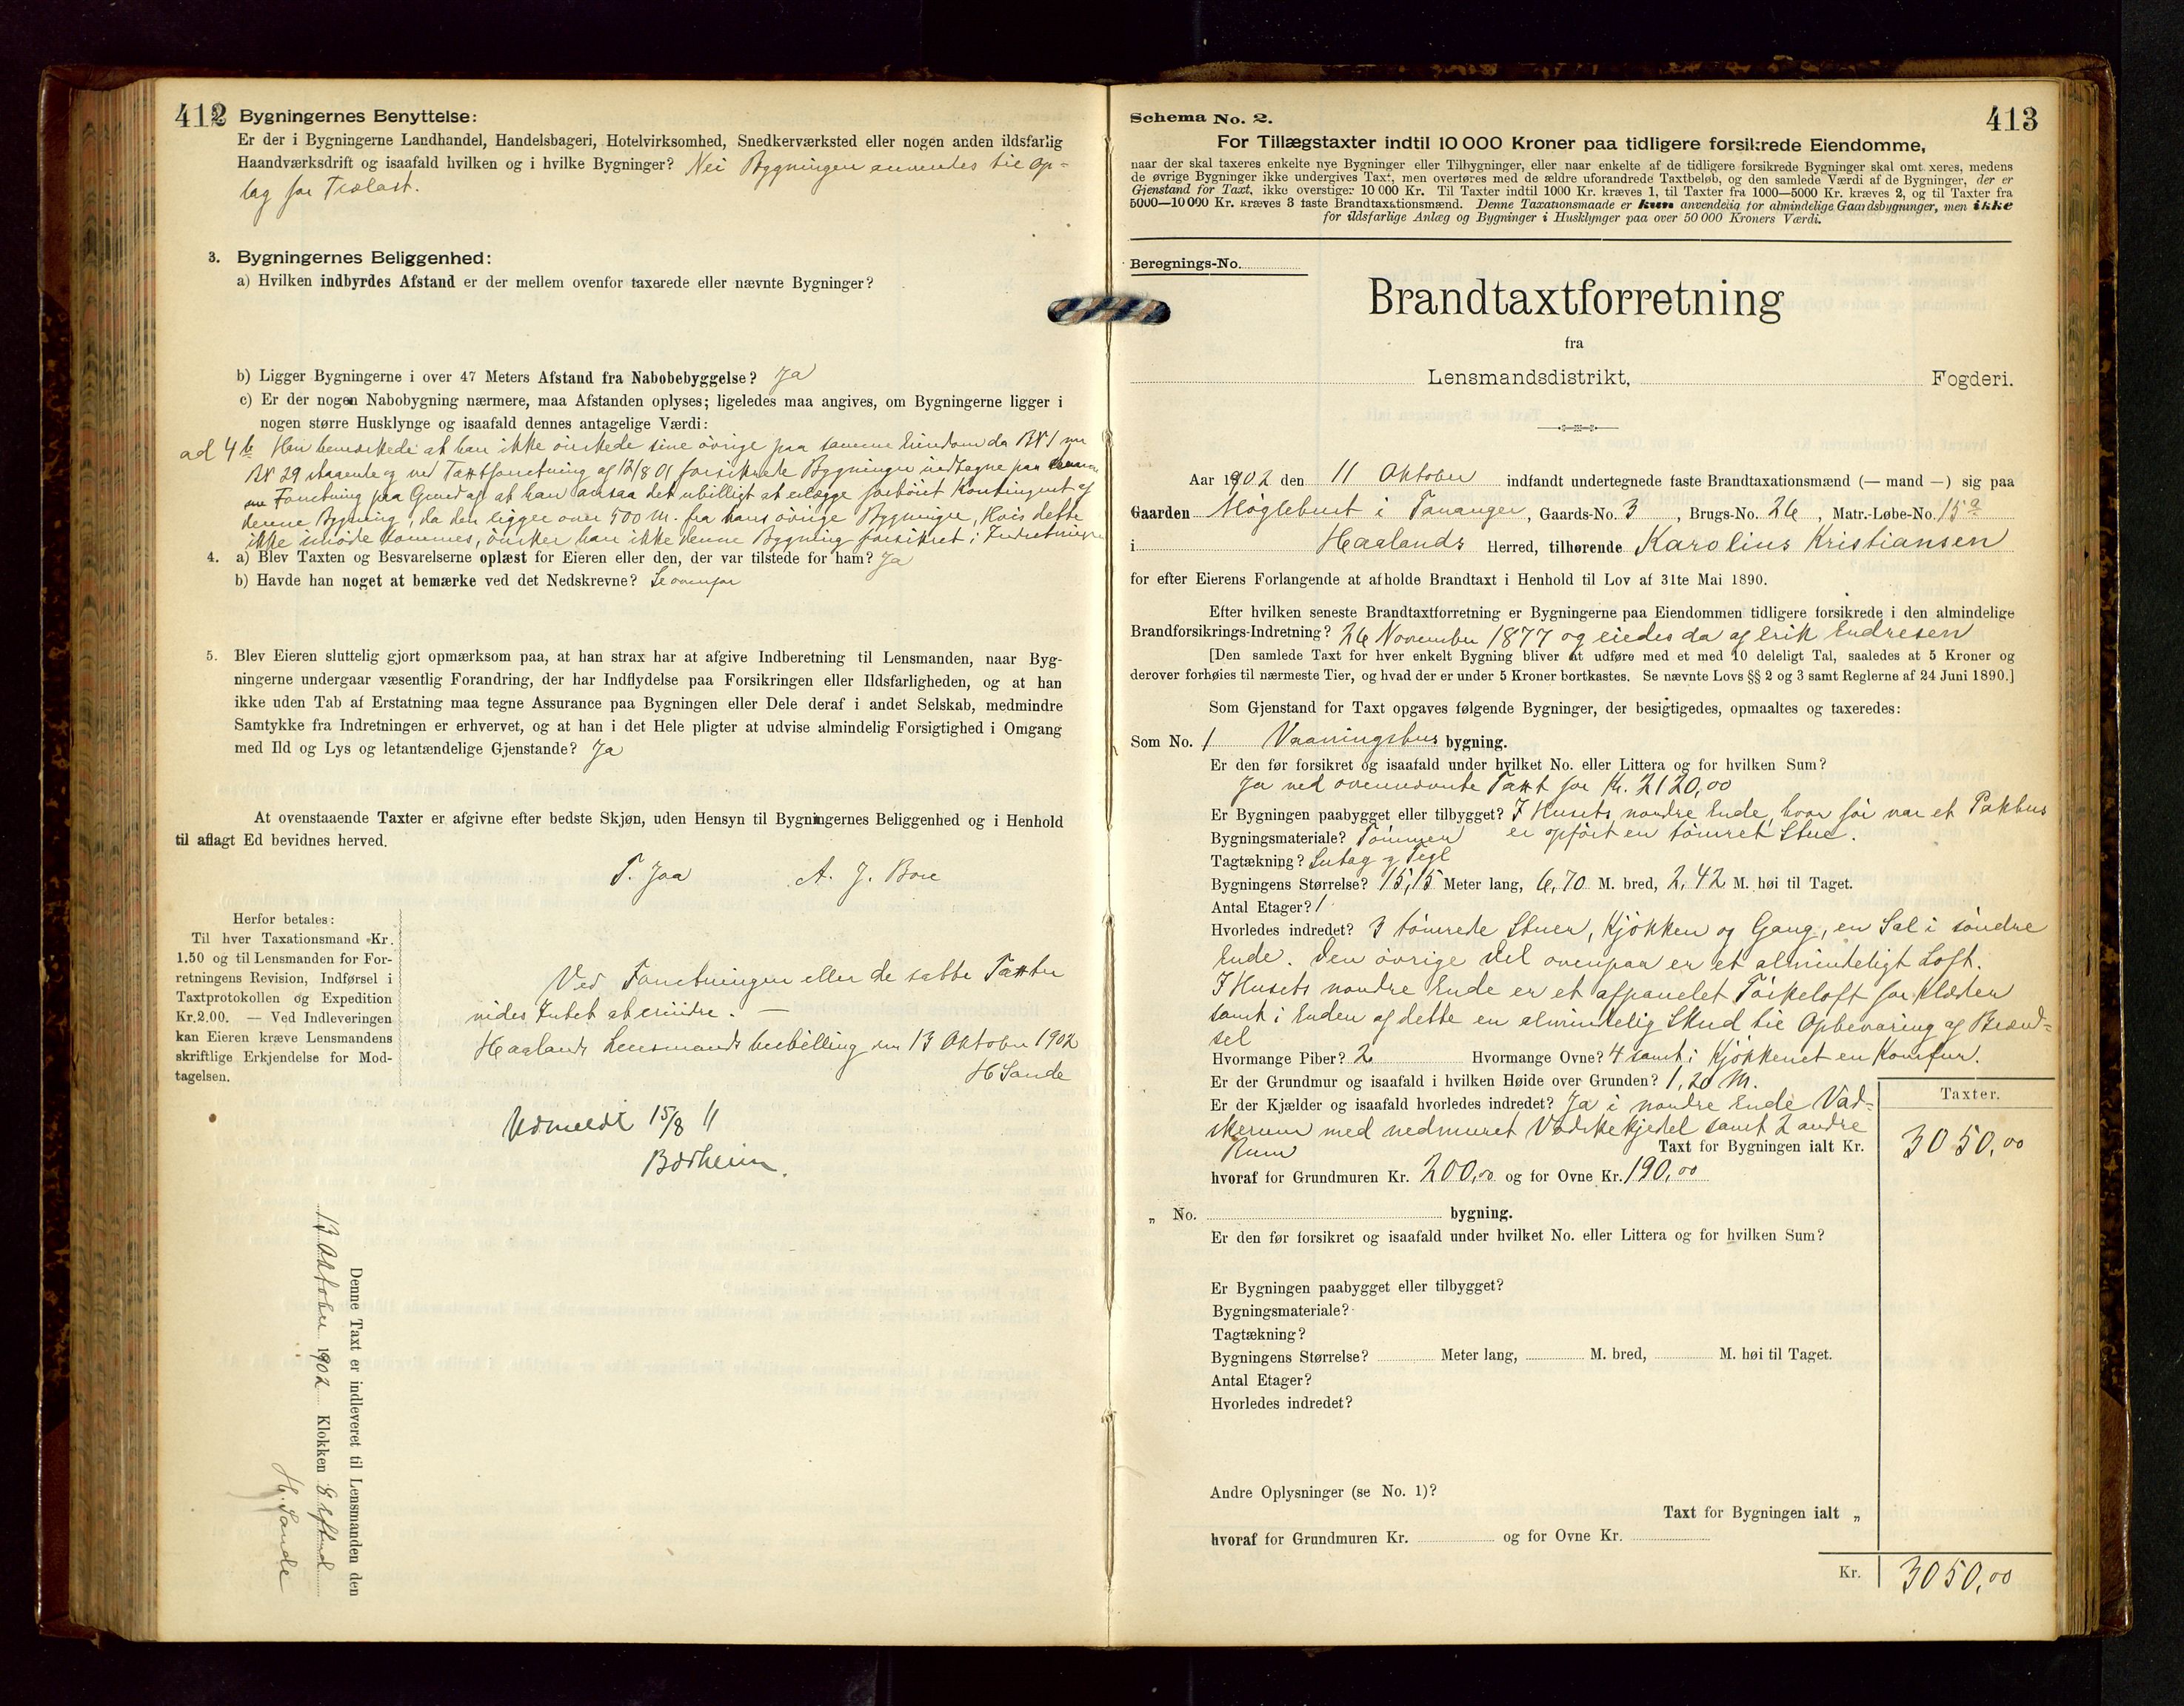 412 Bygningernes Benyttelse:
Er der i Bygningerne Landhandel, Handelsbageri, Hotelvirksomhed, Snedkerværksted eller nogen anden ildsfarlig
Haandværksdrift og isaafald hvilken og i hvilke Bygninger? Nei Bygningen anvendes til Op-
lag for Trælast.
3. Bygningernes Beliggenhed:
a) Hvilken indbyrdes Afstand er der mellem ovenfor taxerede eller nævnte Bygninger?
b) Ligger Bygningerne i over 47 Meters Afstand fra Nabobebyggelse? Ja
c) Er der nogen Nabobygning nærmere, maa Afstanden oplyses; ligeledes maa angives, om Bygningerne ligger i
nogen større Husklynge og isaafald dennes antagelige Værdi:
ad 4 b Han bemærkede at han ikke ønskede sine øvrige paa samme Eiendom da
29 staaende og ved Taxtforretning af 12/8 01 forsikrede Bygninger indtagne paa denne
Forretning paa Grund af at han ansaa det ubilligt at erlægge forhøiet Kontingent af
denne Bygning, da den ligger over 500 M. fra hans øvrige Bygninger, Hvis dette
ikke imødekommes, ønsker han ikke denne Bygning forsikret i Indretningen
4. a) Blev Taxten og Besvarelserne oplæst for Eieren eller den, der var tilstede for ham? Ja
b) Havde han noget at bemærke ved det Nedskrevne? Se ovenfor
5. Blev Eieren sluttelig gjort opmærksom paa, at han strax har at afgive Indberetning til Lensmanden, naar Byg-
ningerne undergaar væsentlig Forandring, der har Indflydelse paa Forsikringen eller Ildsfarligheden, og at han
ikke uden Tab af Erstatning maa tegne Assurance paa Bygningen eller Dele deraf i andet Selskab, medmindre
Samtykke fra Indretningen er erhvervet, og at han i det Hele pligter at udvise almindelig Forsigtighed i Omgang
med Ild og Lys og letantændelige Gjenstande? Ja
At ovenstaaende Taxter er afgivne efter bedste Skjøn, uden Hensyn til Bygningernes Beliggenhed og i Henhold
til aflagt Ed bevidnes herved.
T. Jaa A. J. Bore
Herfor betales:
Til hver Taxationsmand Kr.
1.50 og til Lensmanden for For-
retningens Revision, Indførsel i
Taxtprotokollen og Expedition
Kr. 2.00. — Ved Indleveringen
kan Eieren kræve Lensmandens
skriftlige Erkjendelse for Mod-
tagelsen.
Ved Forretningen eller de satte Taxter
vides Intet at erindre. —
Haalands Lensmandsbestilling den 13 Oktober 1902
H Sande
Udmeldt 15/8 11
Børheim.
Denne Taxt er indleveret til Lensmanden den
13 Oktober 1902 Klokken 8 Eftmd
H. Sande
Schema No. 2. 413
For Tillægstaxter indtil 10 000 Kroner paa tidligere forsikrede Eiendomme,
naar der skal taxeres enkelte nye Bygninger eller Tilbygninger, eller naar enkelte af de tidligere forsikrede Bygninger skal omt xeres, medens
de øvrige Bygninger ikke undergives Taxt, men overføres med de ældre uforandrede Taxtbeløb, og den samlede Værdi af de Bygninger, der er
Gjenstand for Taxt, ikke overstiger 10 000 Kr. Til Taxter indtil 1000 Kr. kræves 1, til Taxter fra 1000—5000 Kr. kræves 2, og til Taxter fra
5000—10 000 Kr. kræves 3 faste Brandtaxationsmænd. Denne Taxationsmaade er kun anvendelig for almindelige Gaardsbygninger, men ikke
for ildsfarlige Anlæg og Bygninger i Husklynger paa over 50 000 Kroners Værdi.
Beregnings-No.
Brandtaxtforretning
fra
Lensmandsdistrikt, Fogderi.
Aar 1902 den 11 Oktober indfandt undertegnede faste Brandtaxationsmænd (— mand —) sig paa
Gaarden Møglebust i Tananger, Gaards-No. 3, Brugs-No. 26, Matr.-Løbe-No. 15a
i Haalands Herred, tilhørende Karolius Kristiansen
for efter Eierens Forlangende at afholde Brandtaxt i Henhold til Lov af 31te Mai 1890.
Efter hvilken seneste Brandtaxtforretning er Bygningerne paa Eiendommen tidligere forsikrede i den almindelige
Brandforsikrings-Indretning? 26 November 1877 og eiedes da af Erik Endresen
[Den samlede Taxt for hver enkelt Bygning bliver at udføre med et med 10 deleligt Tal, saaledes at 5 Kroner og
derover forhøies til nærmeste Tier, og hvad der er under 5 Kroner bortkastes. Se nævnte Lovs §§ 2 og 3 samt Reglerne af 24 Juni 1890.]
Som Gjenstand for Taxt opgaves følgende Bygninger, der besigtigedes, opmaaltes og taxeredes:
Som No. 1 Vaaningshus bygning.
Er den før forsikret og isaafald under hvilket No. eller Littera og for hvilken Sum?
Ja ved ovennævnte Taxt for Kr. 2120,00
Er Bygningen paabygget eller tilbygget? I Husets nordre Ende, hvor før var et Pakhus
Bygningsmateriale? Tømmer er opført en tømret Stue.
Tagtækning? Sutag og Tegl
Bygningens Størrelse? 15,15 Meter lang, 6,70 M. bred, 2,42 M. høi til Taget.
Antal Etager? 1
Hvorledes indredet? 3 tømrede Stuer, Kjøkken og Gang, en Sal i søndre
Ende. Den øvrige Del ovenpaa er et almindeligt Loft.
I Husets nordre Ende er et afpanelet Tørkeloft for Klæder
samt i Enden af dette en almindelig Skud til Opbevaring af Brænd-
sel
Hvormange Piber? 2 Hvormange Ovne? 4 samt i Kjøkkenet en Komfur.
Er der Grundmur og isaafald i hvilken Høide over Grunden? 1,20 M.
Er der Kjælder og isaafald hvorledes indredet? Ja i nordre Ende Vad-
skerum med nedmuret Vadskekjedel samt 2 andre
Rum Taxt for Bygningen ialt Kr.
Taxter.
3050,00
hvoraf for Grundmuren Kr. 200,00 og for Ovne Kr. 190,00
„ No. bygning.
Er den før forsikret og isaafald under hvilket No. eller Littera og for hvilken Sum?
Er Bygningen paabygget eller tilbygget?
Bygningsmateriale?
Tagtækning?
Bygningens Størrelse? Meter lang, M. bred, M. høi til Taget.
Antal Etager?
Hvorledes indredet?
Andre Oplysninger (se No. 1)?
Taxt for Bygningen ialt „
hvoraf for Grundmuren Kr. og for Ovne Kr.
Kr. 3050,00